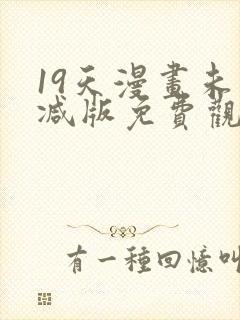 19天漫畫未
减版免費觀
有一種回憶叫